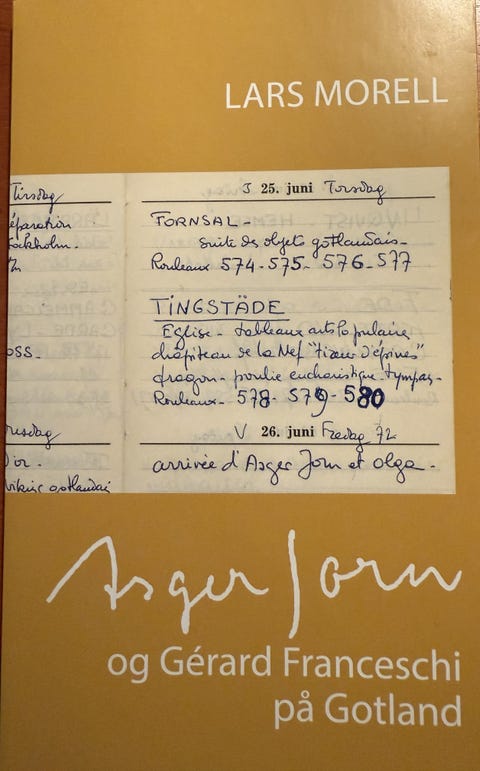 LARS MORELL
Tirsdag
éparation
Stockholm.
J 25. juni Torsdag
FORNSAL -
suite des objets gotlandais -
Rouleaux 574 - 575 - 576 - 577
TINGSTÄDE
Eglise - tableaux arts Populaire
chapiteau de la Nef "tireur d'épines"
dragon - poulie eucharistique - tympan -
Rouleaux - 578 - 579 - 580
oss -
V 26. juni Fredag 72
arrivée d'Asger Jorn et olga -
d'or -
viking gotlandais
Asger Jorn
og Gérard Franceschi
på Gotland